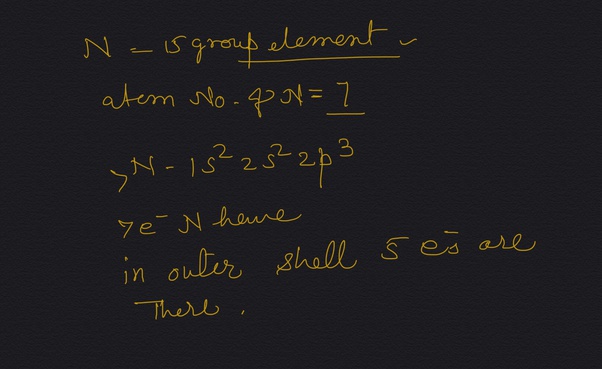 N = 15 group element
atom No. of N = 7
₇N - 1s² 2s² 2p³
7e⁻ N have
in outer shell 5 e⁻s are
There.